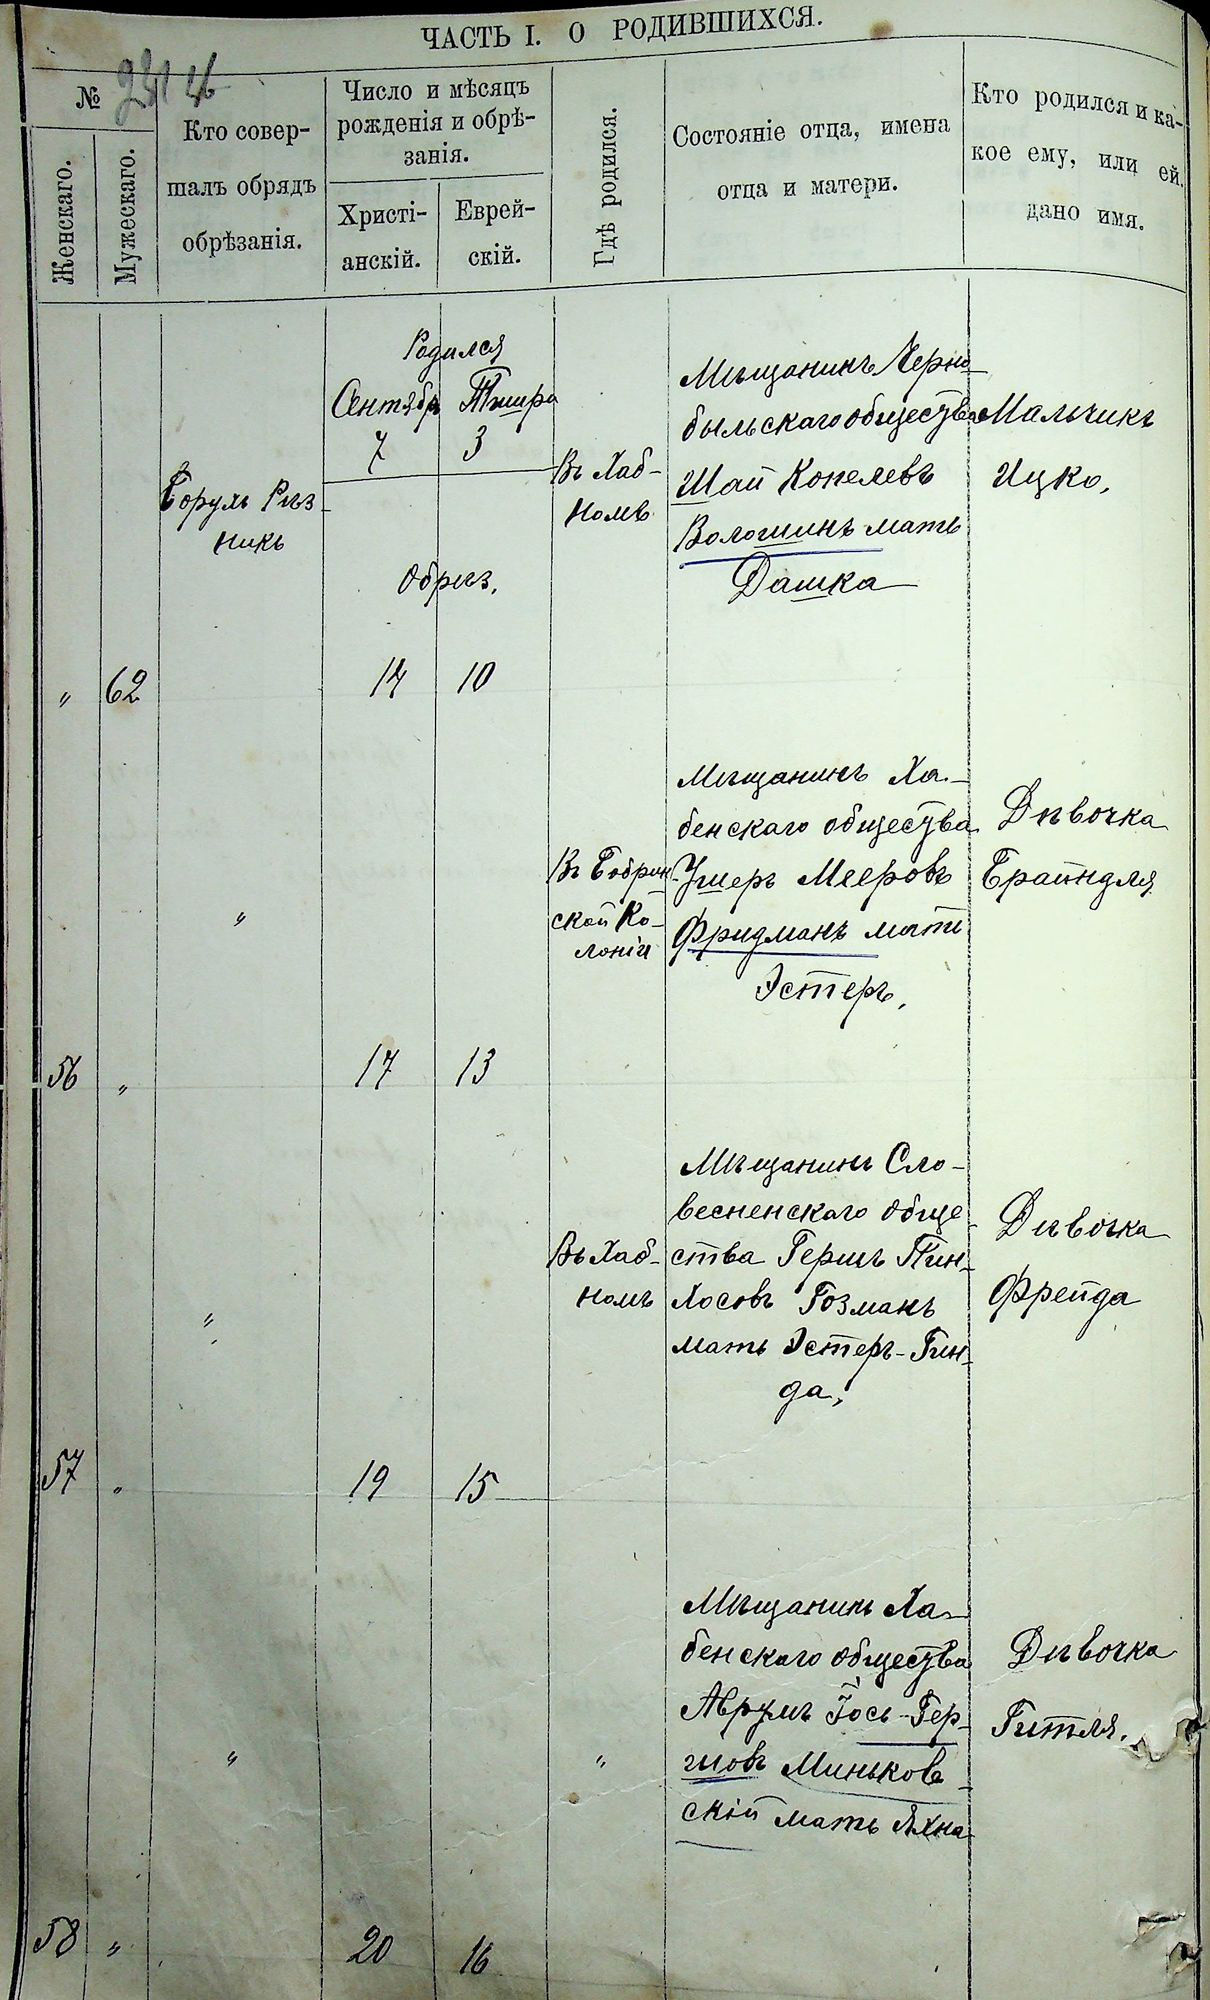 ЧАСТЬ I. О РОДИВШИХСЯ.
№
Женскаго.
Мужескаго.
Кто совер-
шалъ обрядъ
обрѣзанія.
Число и мѣсяцъ
рожденія и обрѣ-
занія.
Христі-
анскій.
Еврей-
скій.
Гдѣ родился.
Состояніе отца, имена
отца и матери.
Кто родился и ка-
кое ему, или ей,
дано имя.
„ 62
Борухъ Рѣз-
никъ
Родился
Сентябр Тишра
7 3
Обрѣз.
14 10
Въ Хаб-
номъ
Мѣщанинъ Черно-
быльскаго общества
Шай Копелевъ
Волошинъ мать
Дашка
Мальчикъ
Ицко,
56 „
„
17 13
Въ Бобрин-
ской Ко-
лоніи
Мѣщанинъ Ха-
бенскаго общества
Ушеръ Мееровъ
Фридманъ мать
Эстеръ,
Дѣвочка
Брайндля
57 „
„
19 15
Въ Хаб-
номъ
Мѣщанинъ Сло-
весненскаго обще-
ства Гершъ Пин-
хосовъ Гозманъ
мать Эстеръ-Гин-
да,
Дѣвочка
Фрейда
58 „
„
20 16
„
Мѣщанинъ Ха-
бенскаго общества
Аврумъ Іось-Гер-
шовъ Миньков-
скій мать Яхна
Дѣвочка
Гитля.